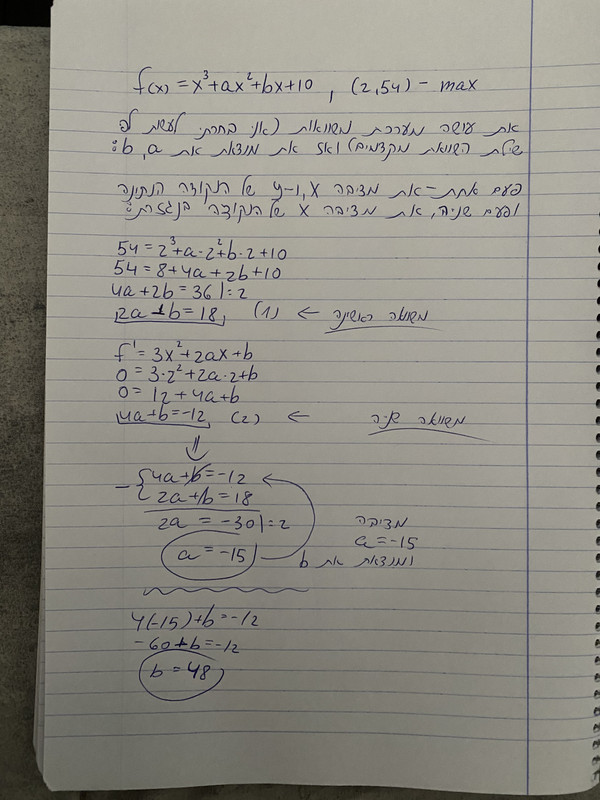 f(x) = x³+ax²+bx+10 , (2,54) - max
את עושה מערכת משוואות (אני בחרתי לעשת לפי
שיטת השוואת מקדמים) ואז את מוצאת את b, a:
פעם אחת - את מציבה x, ו-y של הנקודה הנתינה
ופעם שניה, את מציבה x של הנקודה בנגזרת:
54 = 2³+a·2²+b·2+10
54 = 8+4a+2b+10
4a+2b=36 |:2
2a+b=18, (1) ← משוואה ראשינה
f' = 3x²+2ax+b
0 = 3·2²+2a·2+b
0 = 12+4a+b
4a+b=-12 (2) ← משוואה שניה
⇓
- { 4a+b=-12
2a+b=18
2a = -30 |:2
a = -15
מציבה
a=-15
ומוצאת את b
4(-15)+b=-12
-60+b=-12
b=48